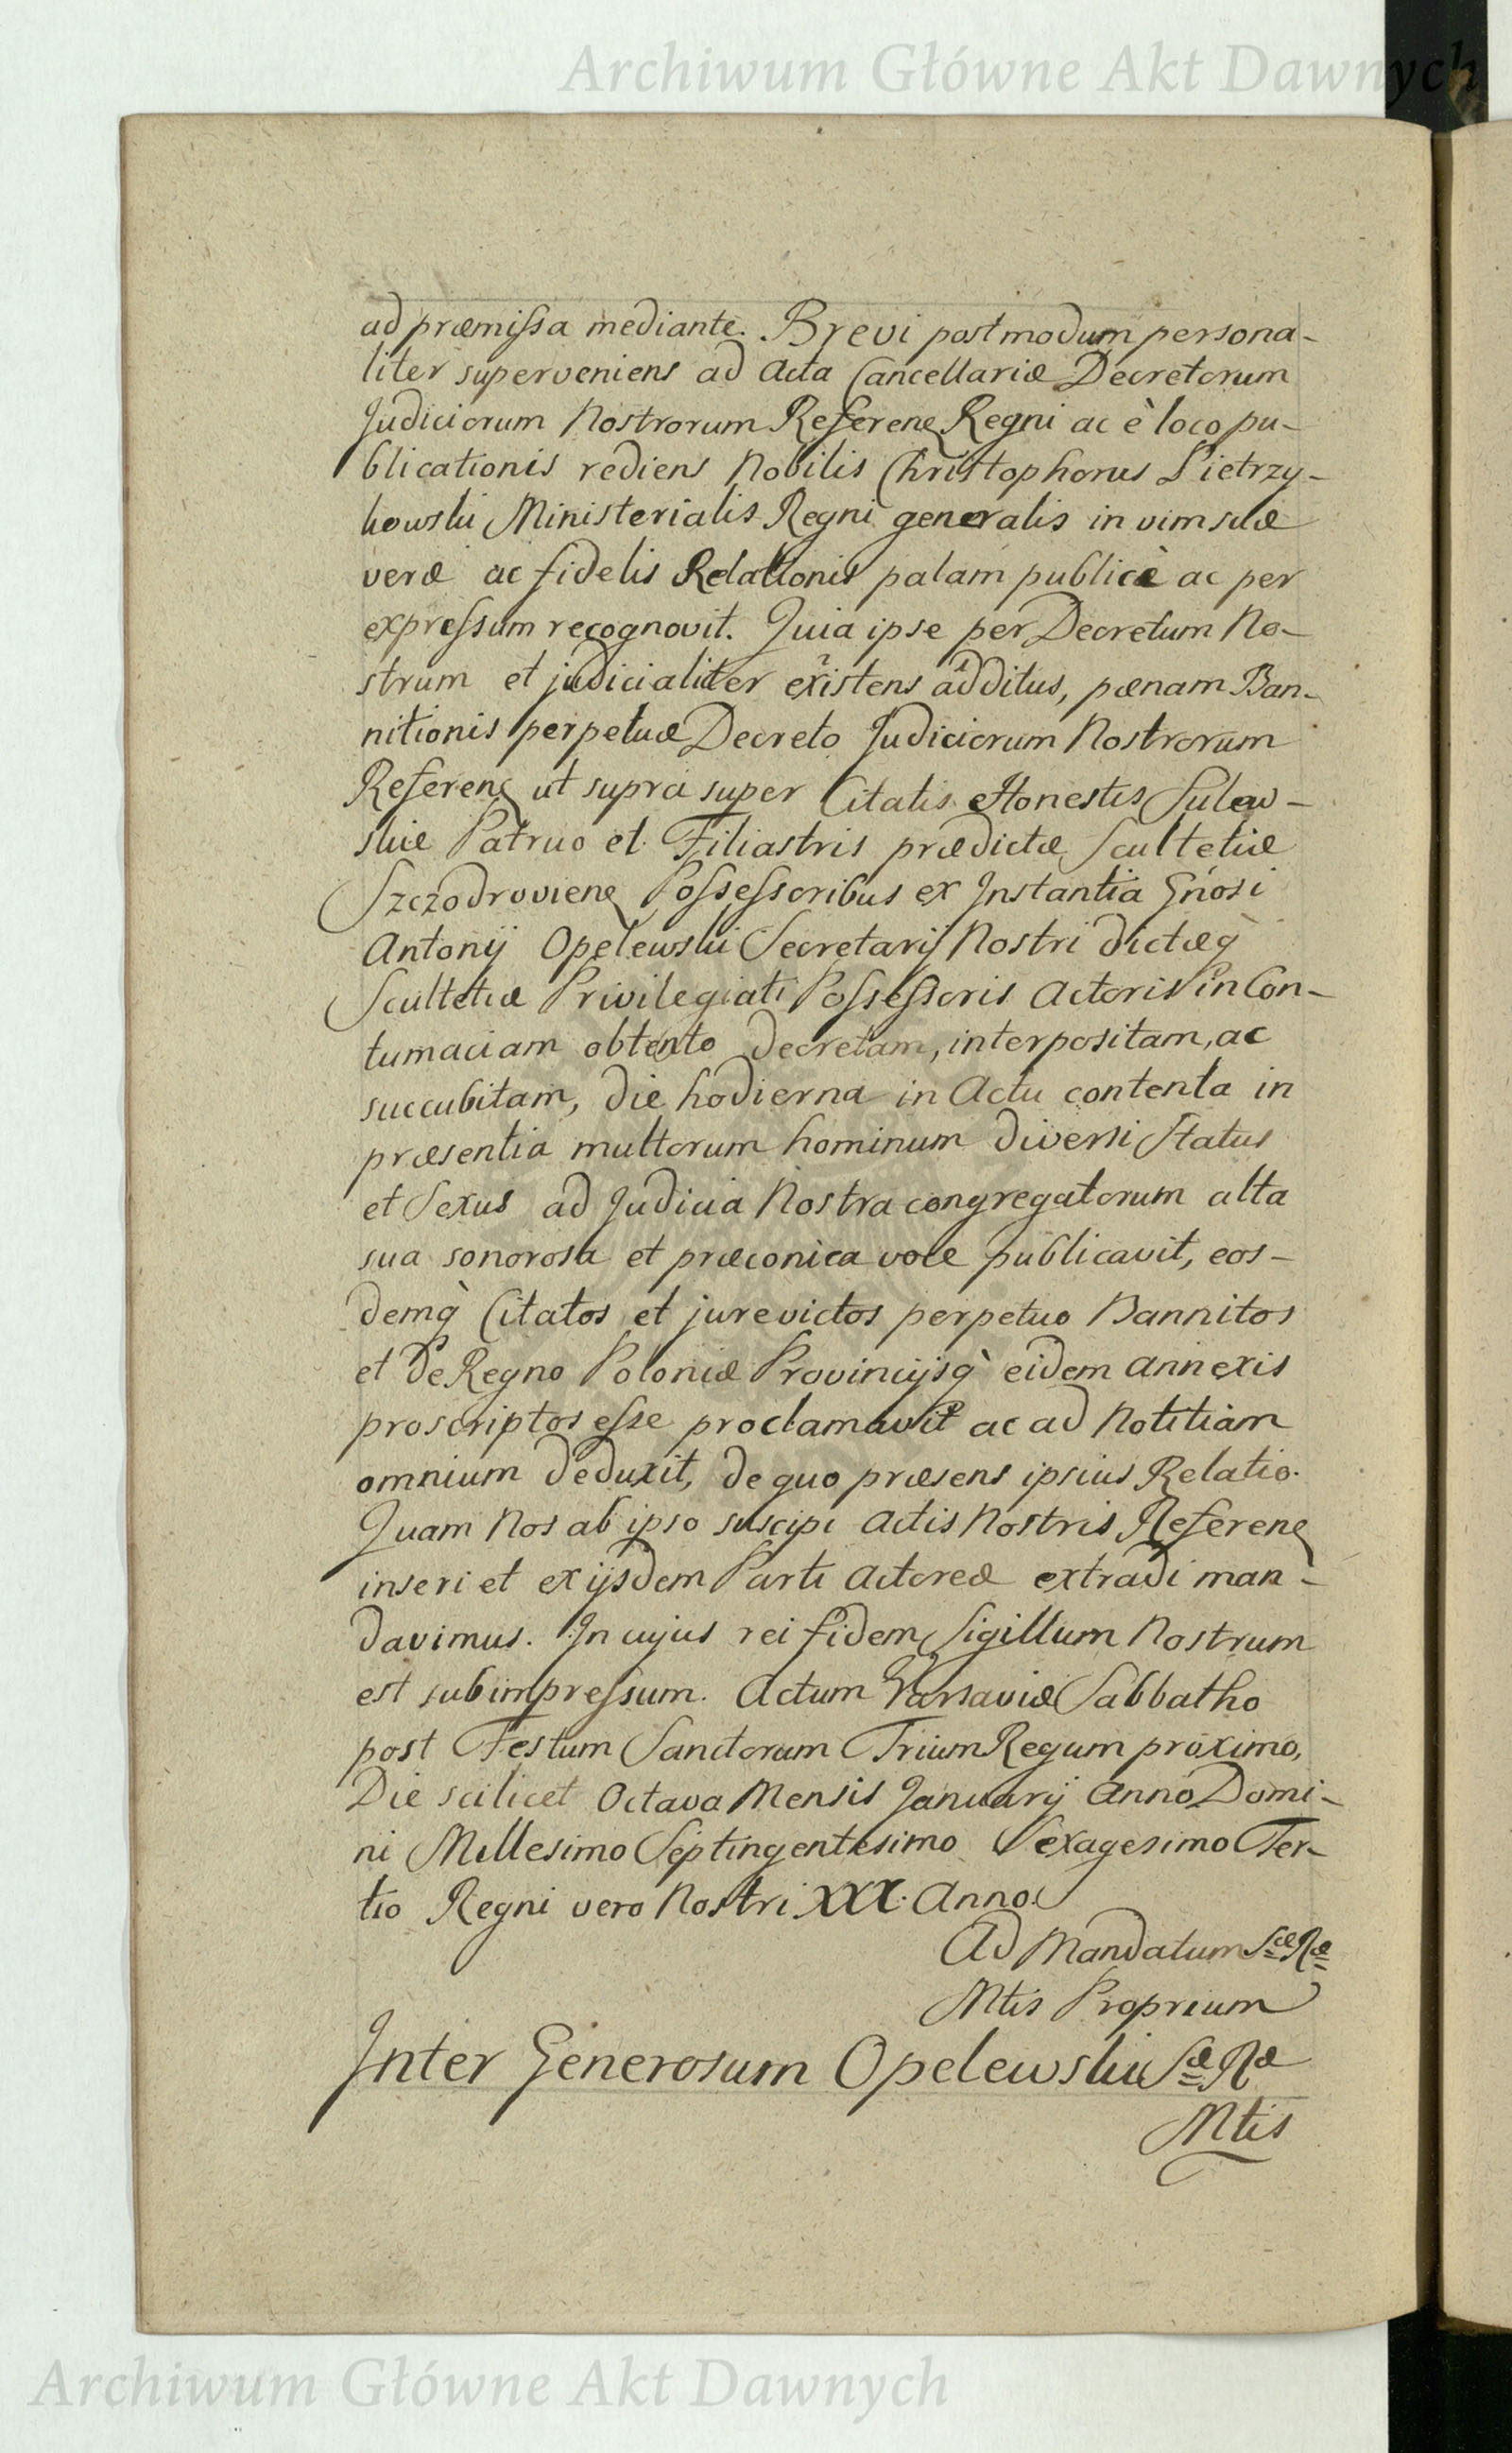 Archiwum Główne Akt Dawnych
ad præmissa mediante. Brevi postmodum persona-
liter superveniens ad Acta Cancellariæ Decretorum
Judiciorum Nostrorum Referenꝫ Regni ac è loco pu-
blicationis rediens Nobilis Christophorus Pietrzy-
kowski Ministerialis Regni generalis in vim suæ
veræ ac fidelis Relationis palam publicè ac per
expressum recognovit. Quia ipse per Decretum No-
strum et judicialiter existens additus, pænam Ban-
nitionis perpetuæ Decreto Judiciorum Nostrorum
Referenꝫ ut supra super Citatis Honestis Sulew-
skie Patruo et Filiastris prædictæ Scultetiæ
Szczodrovienꝫ Possessoribus ex Instantia Gnosi
Antonij Opelewski Secretarij Nostri dictæq̀
Scultetiæ Privilegiati Possessoris Actoris in Con-
tumaciam obtento decretam, interpositam, ac
succubitam, die hodierna in Actu contenta in
præsentia multorum hominum diversi Status
et Sexus ad Judicia Nostra congregatorum alta
sua sonorosa et præconica voce publicavit, eos-
demq̀ Citatos et jurevictos perpetuo Bannitos
et de Regno Poloniæ Provincijsq̀ eidem annexis
proscriptos esse proclamavit ac ad Notitiam
omnium deduxit, de quo præsens ipsius Relatio.
Quam Nos ab ipso suscipi Actis Nostris Referenꝫ
inseri et ex ijsdem Parti Actoreæ extradi man-
davimus. In cujus rei fidem Sigillum Nostrum
est subimpressum. Actum Varsaviæ Sabbatho
post Festum Sanctorum Trium Regum proximo,
Die scilicet Octava Mensis Januarij Anno Domi-
ni Millesimo Septingentesimo Sexagesimo Ter-
tio Regni vero Nostri XXX. Anno.
Ad Mandatum Sæ Ræ
Mtis Proprium
Inter Generosum Opelewski Sæ Ræ
Mtis
Archiwum Główne Akt Dawnych